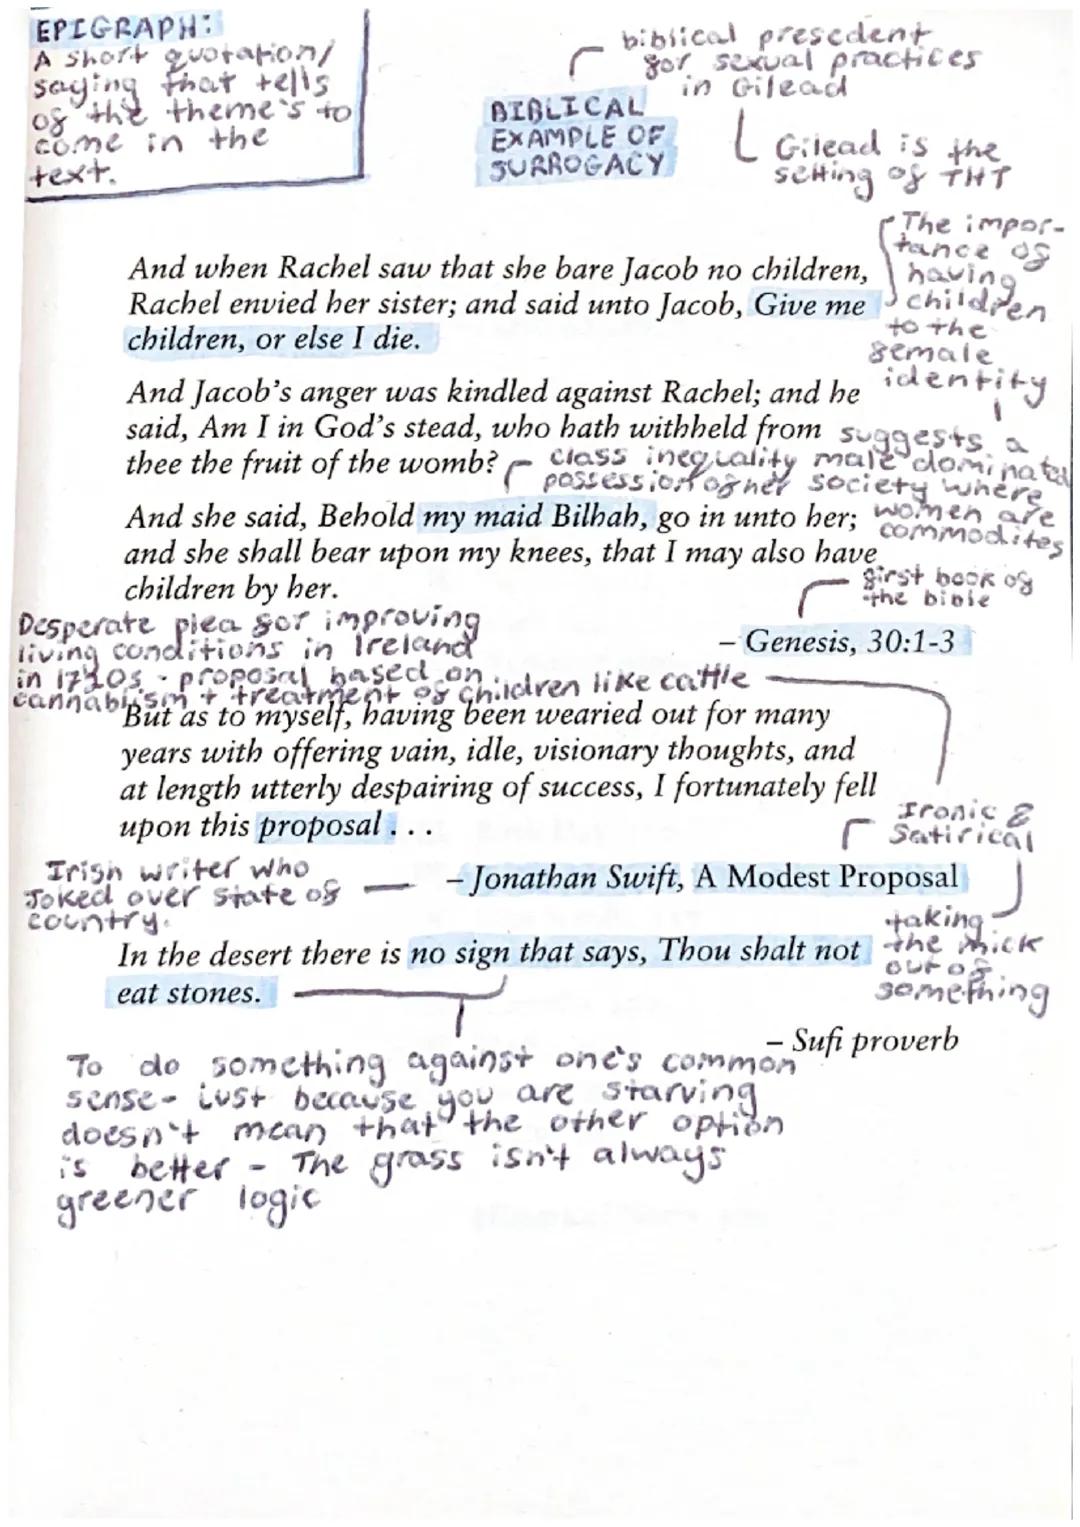 EPIGRAPH:
A short quotation/
saying that tells
of the theme's to
come in the
text.
biblical presedent
for sexual practices
in Gilead
BIBLICAL
EXAMPLE OF
SURROGACY
Gilead is the
setting of THT
The impor-
tance of
having
children
to the
female
identity
suggests a
male dominated
society where
women are
commodites
And when Rachel saw that she bare Jacob no children,
Rachel envied her sister; and said unto Jacob, Give me
children, or else I die.
And Jacob's anger was kindled against Rachel; and he
said, Am I in God's stead, who hath withheld from
thee the fruit of the womb?
class inequality
possession of her
And she said, Behold my maid Bilhah, go in unto her;
and she shall bear upon my knees, that I may also have
children by her.
first book of
the bible
– Genesis, 30:1-3
Desperate plea for improving
living conditions in Ireland
in 1720s - proposal based on
cannabiism + treatment of children like cattle
But as to myself, having been wearied out for many
years with offering vain, idle, visionary thoughts, and
at length utterly despairing of success, I fortunately fell
upon this proposal . . .
Ironic &
Satirical
Irish writer who
Joked over state of
country.
– Jonathan Swift, A Modest Proposal
taking
the mick
out of
something
In the desert there is no sign that says, Thou shalt not
eat stones.
– Sufi proverb
To do something against one's common
sense- just because you are starving
doesn't mean that the other option
is better - The grass isn't always
greener logic